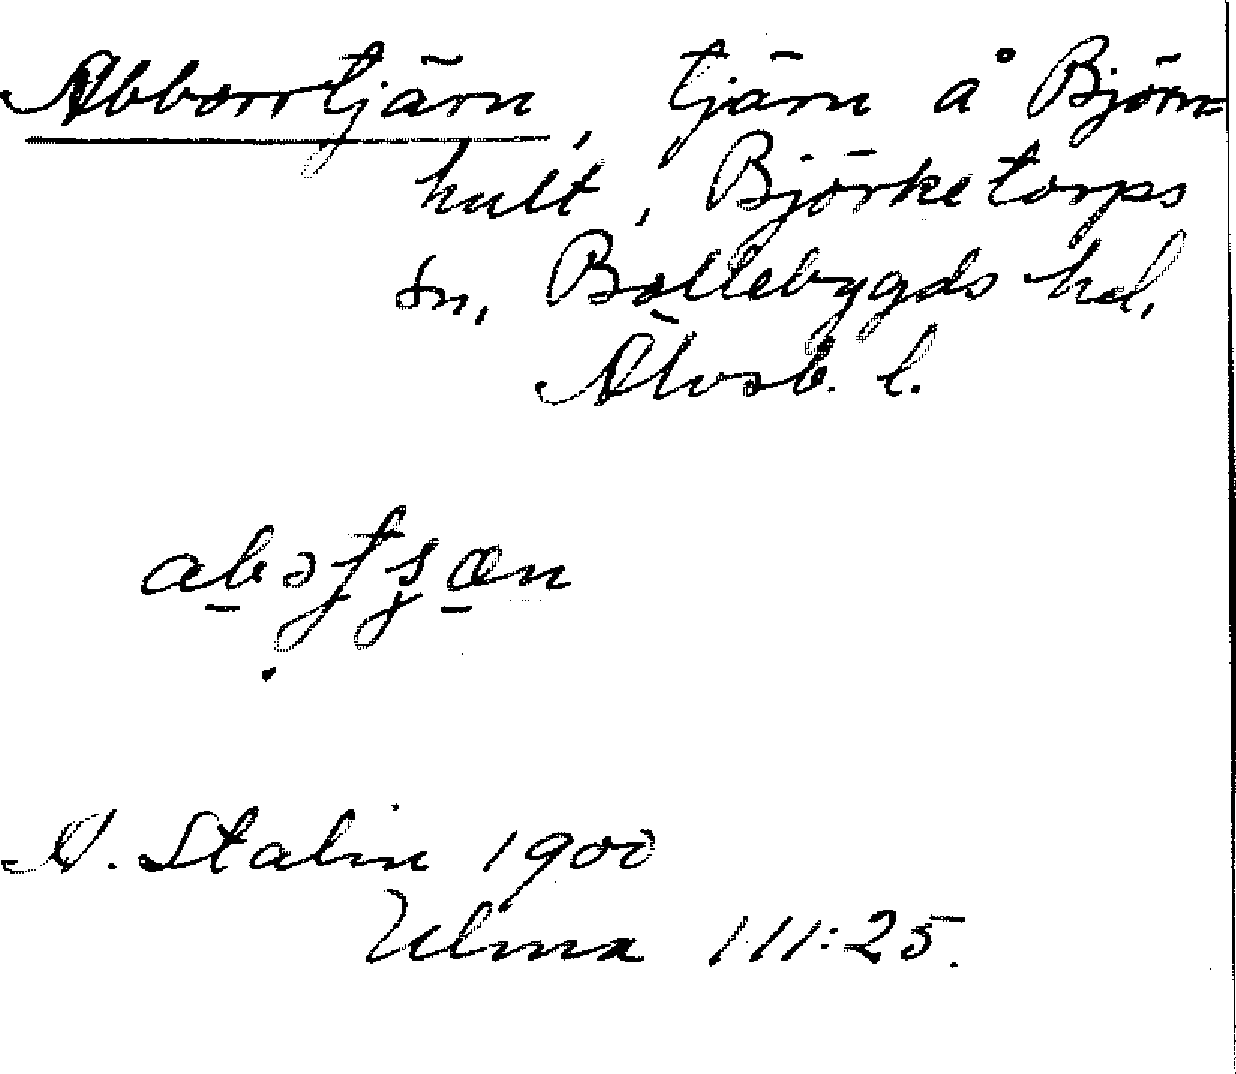 Abborrtjärn, tjärn å Björn=
hult, Björketorps
sn, Bollebygds hd,
Älvsb. l.
A. Stalin 1900
Ulma 111:25.